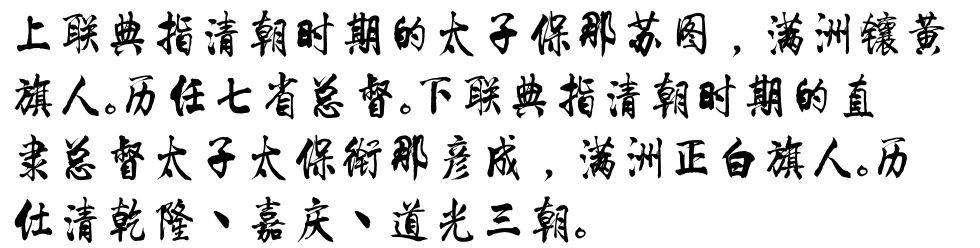 上联典指清朝时期的太子保那苏图，满洲镶黄
旗人。历任七省总督。下联典指清朝时期的直
隶总督太子太保衔那彦成，满洲正白旗人。历
仕清乾隆、嘉庆、道光三朝。